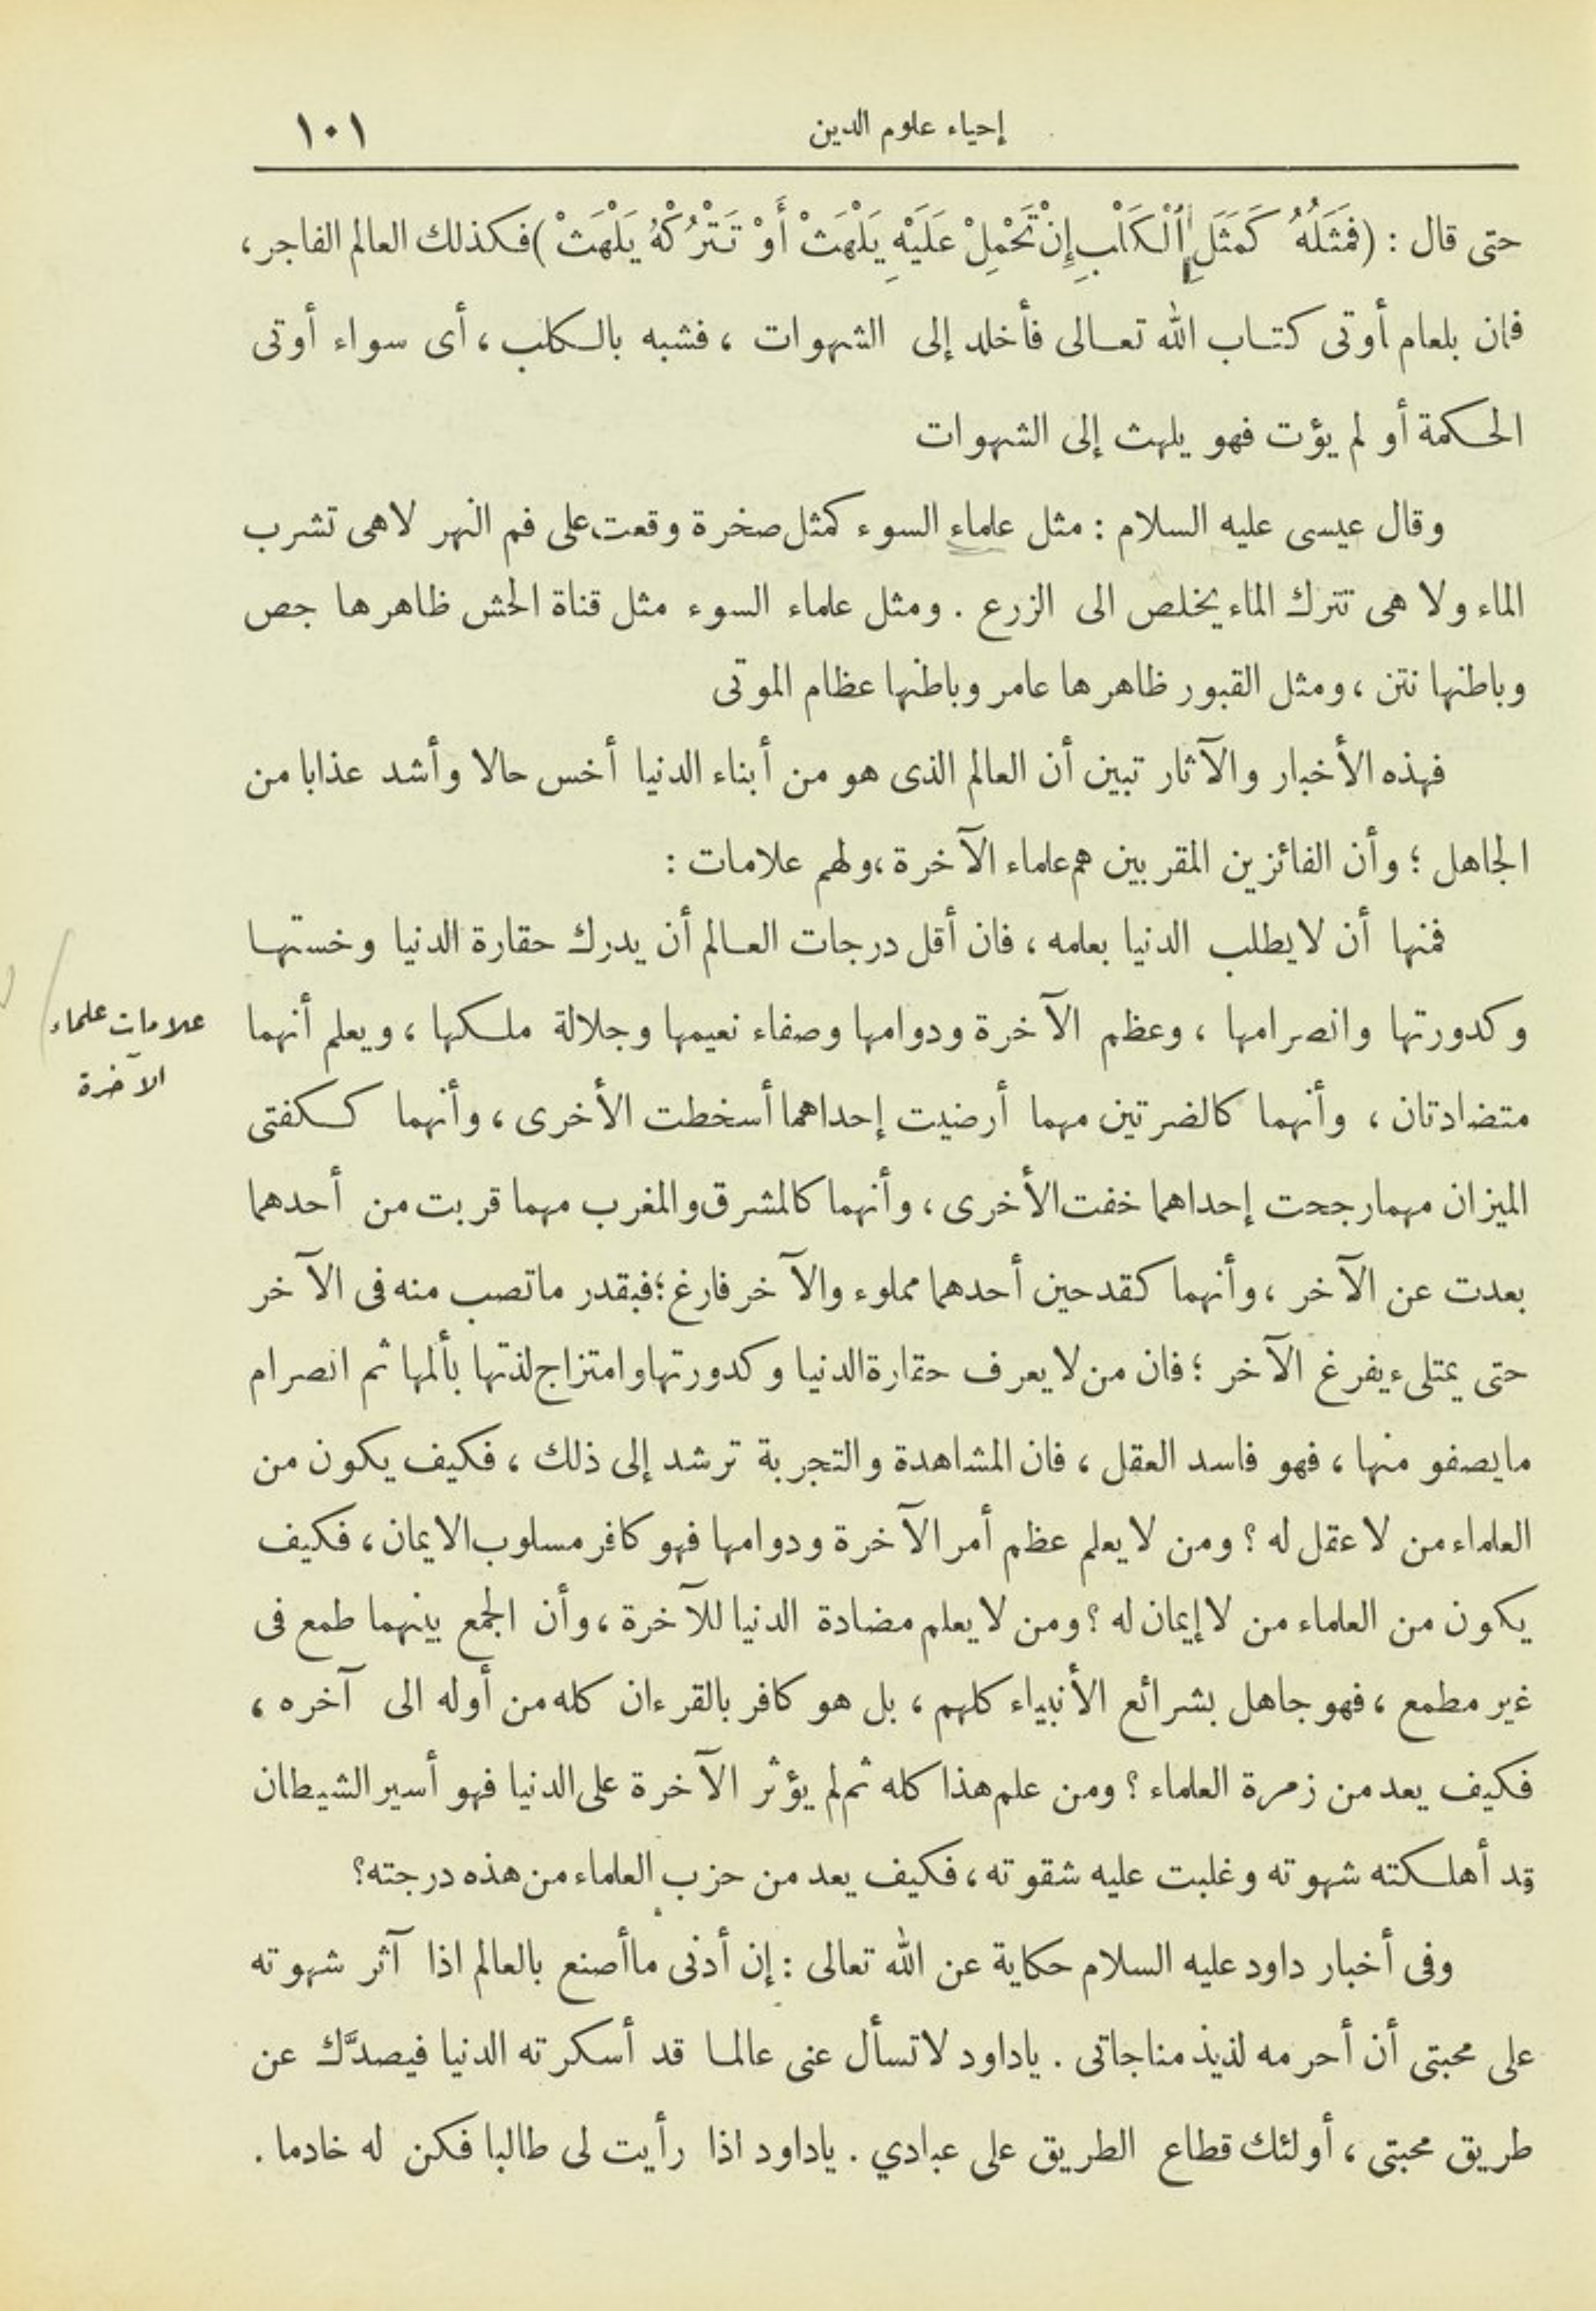 إحياء علوم الدين
١٠١
حتى قال : (فَمَثَلُهُ كَمَثَلِ ٱلْكَلْبِ إِنْ تَحْمِلْ عَلَيْهِ يَلْهَثْ أَوْ تَتْرُكْهُ يَلْهَثْ) فكذلك العالم الفاجر،
فان بلعام أوتى كتاب الله تعالى فأخلد إلى الشهوات ، فشبه بالكلب ، أى سواء أوتى
الحكمة أو لم يؤت فهو يلهث إلى الشهوات
وقال عيسى عليه السلام : مثل علماء السوء كمثل صخرة وقعت على فم النهر لا هى تشرب
الماء ولا هى تترك الماء يخلص الى الزرع . ومثل علماء السوء مثل قناة الحش ظاهرها جص
وباطنها نتن ، ومثل القبور ظاهرها عامر وباطنها عظام الموتى
فهذه الأخبار والآثار تبين أن العالم الذى هو من أبناء الدنيا أخس حالا وأشد عذابا من
الجاهل ؛ وأن الفائزين المقربين هم علماء الآخرة ، ولهم علامات :
فمنها أن لا يطلب الدنيا بعلمه ، فان أقل درجات العالم أن يدرك حقارة الدنيا وخستها
وكدورتها وانصرامها ، وعظم الآخرة ودوامها وصفاء نعيمها وجلالة ملكها ، ويعلم أنهما
علامات علماء
الآخرة
متضادتان ، وأنهما كالضرتين مهما أرضيت إحداهما أسخطت الأخرى ، وأنهما ككفتى
الميزان مهما رجحت إحداهما خفت الأخرى ، وأنهما كالمشرق والمغرب مهما قربت من أحدهما
بعدت عن الآخر ، وأنهما كقدحين أحدهما مملوء والآخر فارغ ؛ فبقدر ما تصب منه فى الآخر
حتى يمتلىء يفرغ الآخر ؛ فان من لا يعرف حقارة الدنيا وكدورتها وامتزاج لذتها بألمها ثم انصرام
ما يصفو منها ، فهو فاسد العقل ، فان المشاهدة والتجربة ترشد إلى ذلك ، فكيف يكون من
العلماء من لا عقل له ؟ ومن لا يعلم عظم أمر الآخرة ودوامها فهو كافر مسلوب الايمان ، فكيف
يكون من العلماء من لا إيمان له ؟ ومن لا يعلم مضادة الدنيا للآخرة ، وأن الجمع بينهما طمع فى
غير مطمع ، فهو جاهل بشرائع الأنبياء كلهم ، بل هو كافر بالقرءان كله من أوله الى آخره ،
فكيف يعد من زمرة العلماء ؟ ومن علم هذا كله ثم لم يؤثر الآخرة على الدنيا فهو أسير الشيطان
قد أهلكته شهوته وغلبت عليه شقوته ، فكيف يعد من حزب العلماء من هذه درجته؟
وفى أخبار داود عليه السلام حكاية عن الله تعالى : إن أدنى ما أصنع بالعالم اذا آثر شهوته
على محبتى أن أحرمه لذيذ مناجاتى . ياداود لا تسأل عنى عالما قد أسكرته الدنيا فيصدَّك عن
طريق محبتى ، أولئك قطاع الطريق على عبادي . ياداود اذا رأيت لى طالبا فكن له خادما .